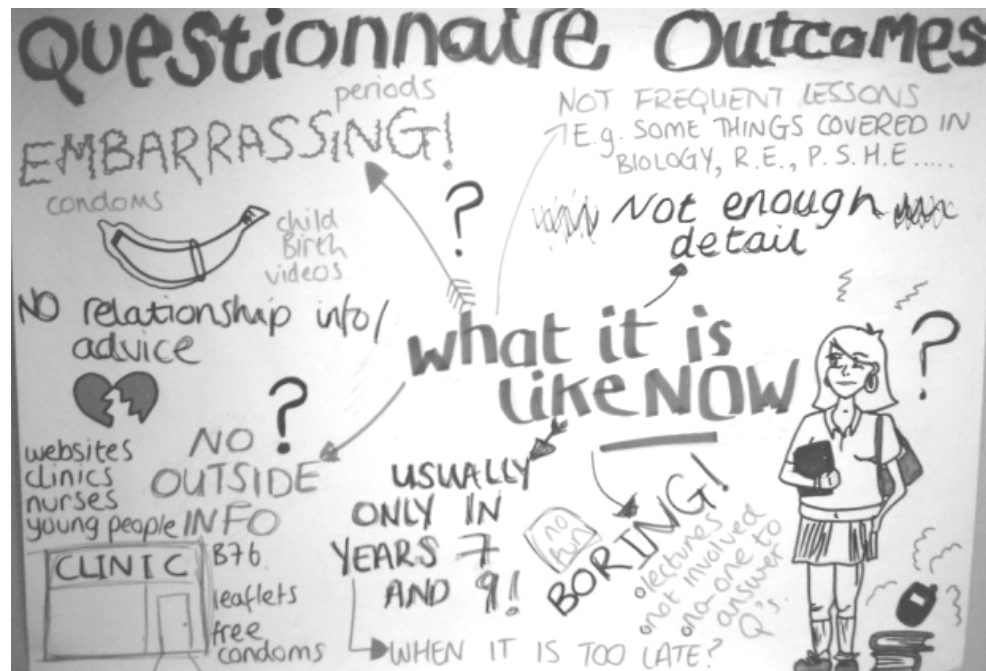 Questionnaire Outcomes
periods
EMBARRASSING!
condoms
child
Birth
videos
NOT FREQUENT LESSONS
E.g. SOME THINGS COVERED IN
BIOLOGY, R.E., P.S.H.E.....
?
Not enough
detail
NO relationship info/
advice
what it is
like NOW
?
?
NO
OUTSIDE
INFO
websites
clinics
nurses
young people
CLINIC
B76
leaflets
free
condoms
USUALLY
ONLY IN
YEARS 7
AND 9!
WHEN IT IS TOO LATE?
no
fun
BORING!
lectures
not involved
no-one to
answer
Q's.